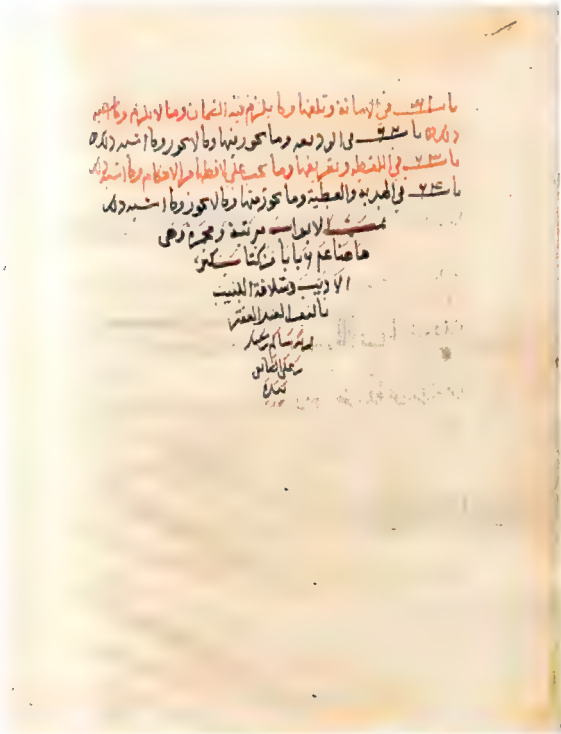 باب ٦١ في الامانة وتلفها وما يلزم فيه الضمان وما لا يلزم وما اشبه
ذلك باب ٦٢ في الوديعه وما يجوز فيها وما لا يجوز وما اشبه ذلك
باب ٦٣ في اللقطه وتعريفها وما يجب على لاقطها من الاحكام وما اشبه ذلك
باب ٦٤ في الهدية والعطية وما يجوز فيها وما لا يجوز وما اشبه ذلك
تمت الابواب مرتبة وهي
هاهنا بابا من كتاب كنز
الاديب وسلافة اللبيب
العبد الفقير
سالم
بيده